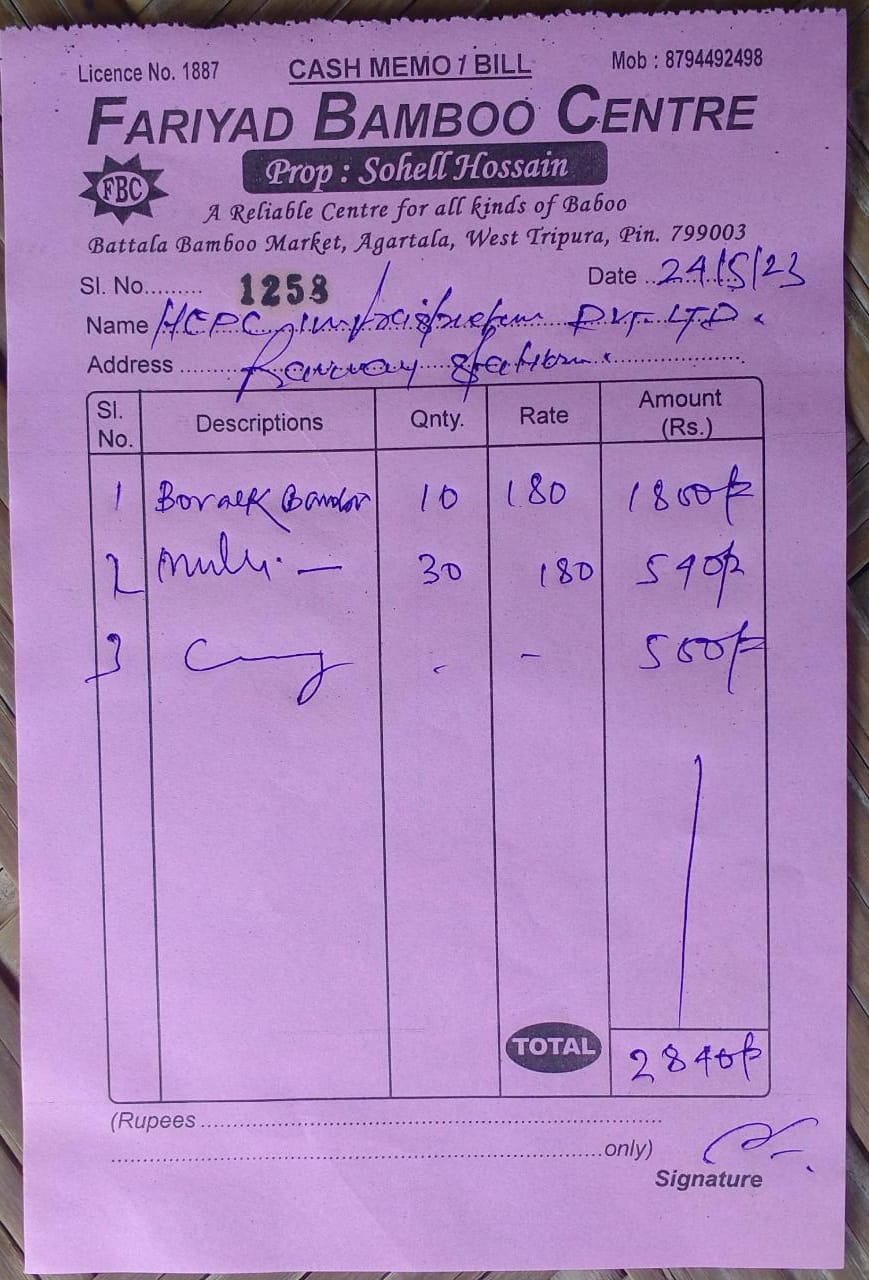 Licence No. 1887 CASH MEMO / BILL Mob : 8794492498
FARIYAD BAMBOO CENTRE
FBC Prop : Sohell Hossain
A Reliable Centre for all kinds of Baboo
Battala Bamboo Market, Agartala, West Tripura, Pin. 799003
Sl. No......... 1258 Date 24/5/23
Name HCPC PVT. LTD.
Address Railway Station
Sl. No. Descriptions Qnty. Rate Amount (Rs.)
1 Borak 10 180 1800/-
2 Muli — 30 180 540/-
3 - - 500/-
TOTAL 2840/-
(Rupees ..........
..........only)
Signature